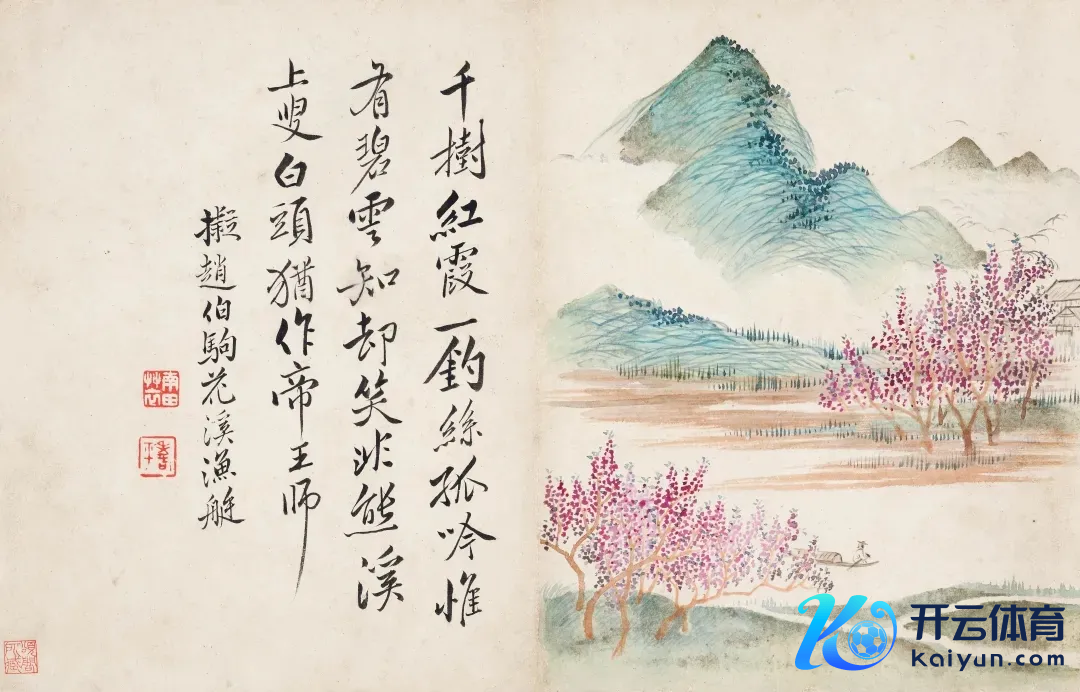 千樹紅霞一釣絲孤吟惟
有碧雲知却笑非熊溪
上叟白頭猶作帝王師
擬趙伯駒花溪漁艇
南田
草衣
壽平
开云体育
Kaiyun.com